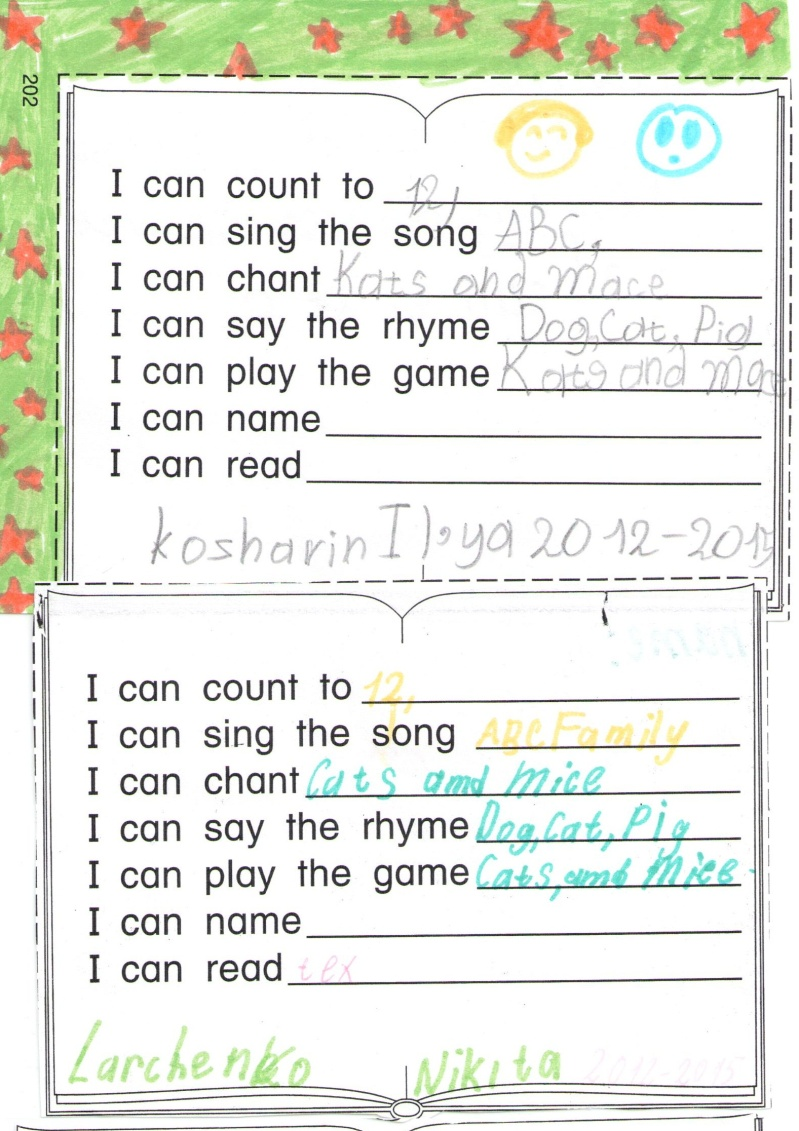 202
I can count to 12,
I can sing the song ABC,
I can chant Kats and mace
I can say the rhyme Dog, Cat, Pig
I can play the game Kats and mace
I can name
I can read
kosharin Il'ya 2012-2015
name:
I can count to 12,
I can sing the song ABC Family
I can chant Cats amd mice
I can say the rhyme Dog, Cat, Pig
I can play the game Cats, amd mice.
I can name
I can read tex
Larchenko Nikita 2012-2015